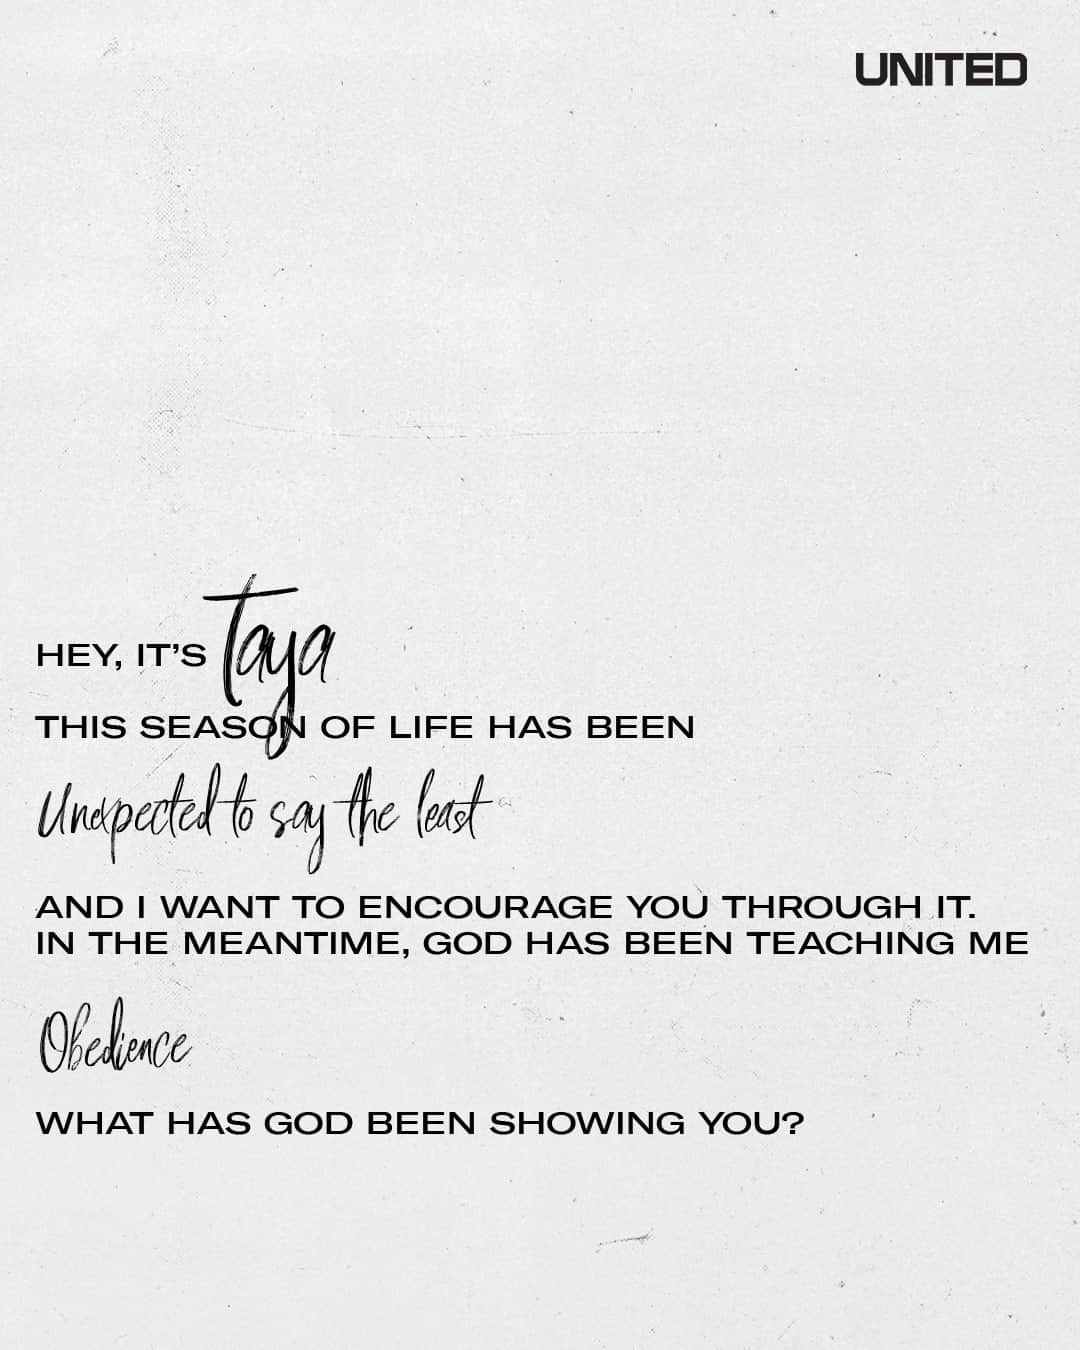 UNITED
HEY, IT'S Taya
THIS SEASON OF LIFE HAS BEEN
Unexpected to say the least
AND I WANT TO ENCOURAGE YOU THROUGH IT.
IN THE MEANTIME, GOD HAS BEEN TEACHING ME
Obedience
WHAT HAS GOD BEEN SHOWING YOU?